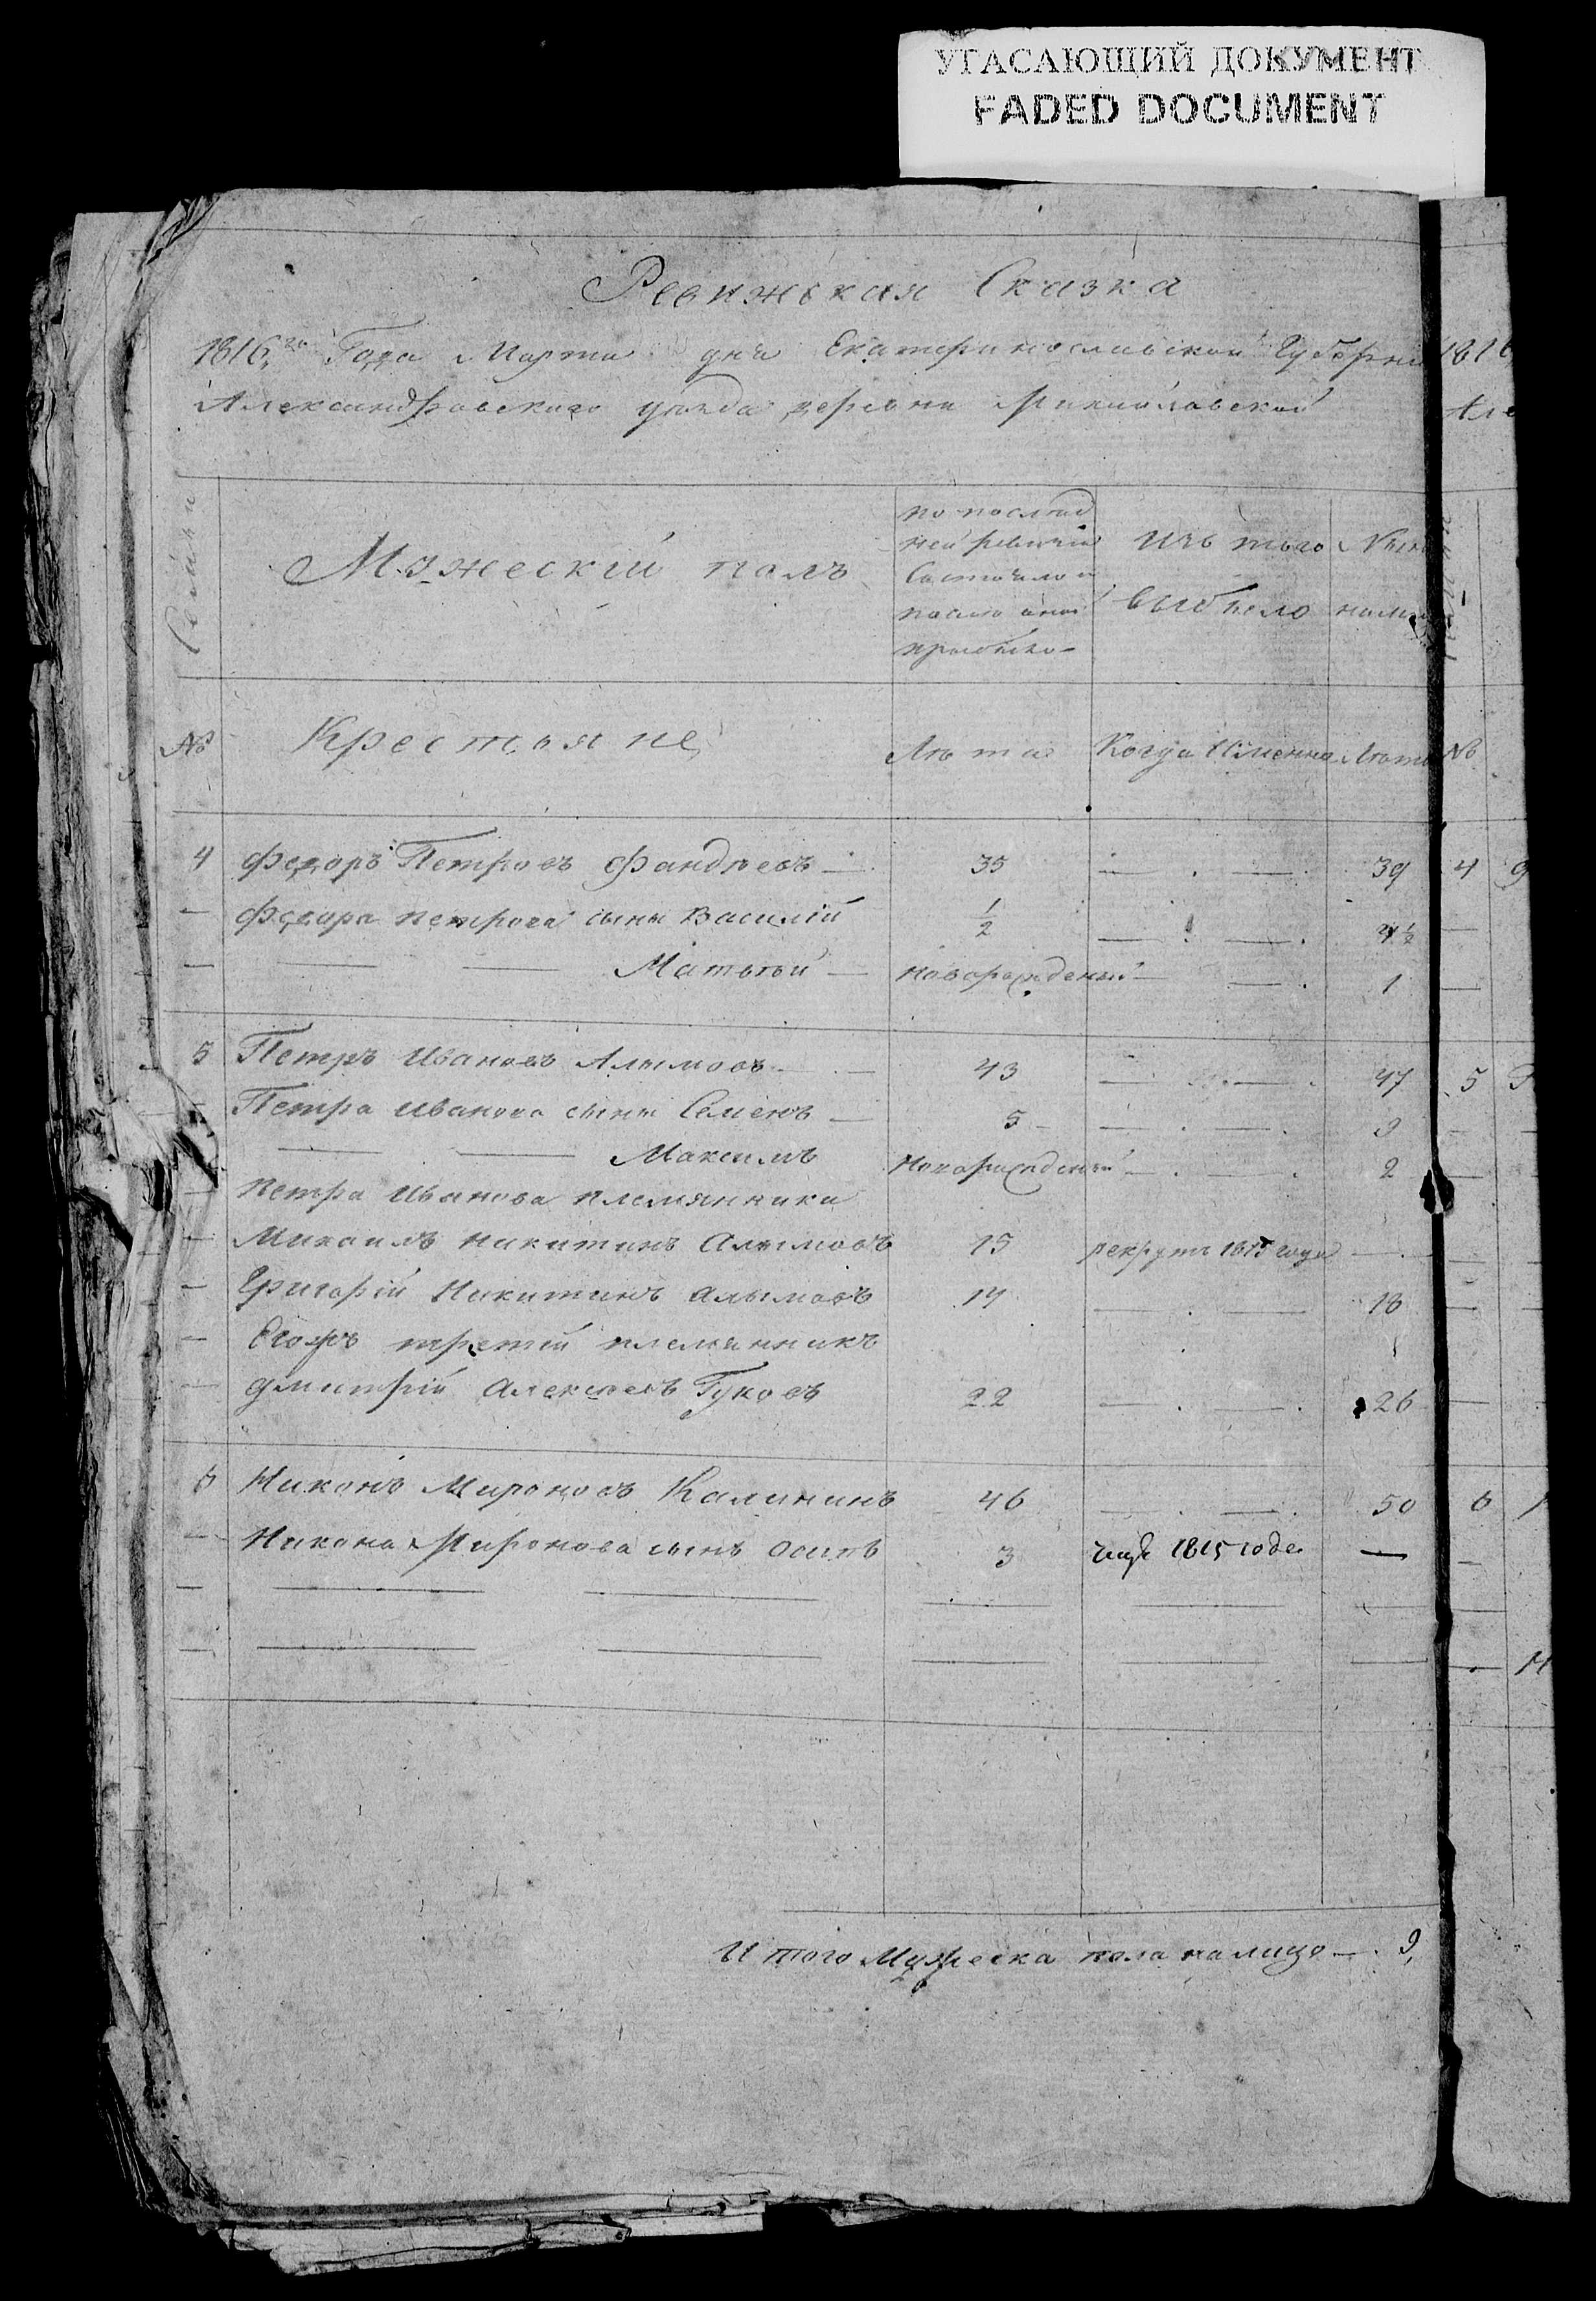 УГАСАЮЩИЙ ДОКУМЕНТ
FADED DOCUMENT
Ревижская Сказка
1816го Года Марта дня Екатеринославской Губернии
Александровского уезда деревни
Семьи
Мужеский полъ
по послед
ней ревизии
состояло и
после оной
прибыло
Изъ того
выбыло
Ныне
на лицо
№ Крестьяне Лѣта Когда Именно Лѣта №
4 Федоръ Петровъ Фандѣевъ — 35 — . — . 39 4
— Федора Петрова сыны Василій ½ — . — . 4½ —
— — — Матвѣй — новорожденый — — . 1 —
5 Петръ Ивановъ Алымовъ — 43 — . — . 47 5
Петра Иванова сыны Семенъ — 5 — — . — . 9 —
— — Максимъ Новорожденый — . — . 2 —
— Петра Иванова племянники
— Михаилъ Никитинъ Алымовъ 15 рекрутъ 1815 года — .
— Григорій Никитинъ Алымовъ 14 — . — 18 —
— Егожъ третій племянникъ
— Дмитрій Алексѣевъ Гуковъ 22 — . — . 26 —
6 Никонъ Мироновъ Калининъ 46 — . — . 50 6
— Никона Миронова сынъ Осипъ 3 1815 годе — —
Итого Мужеска пола налицо — . 9,